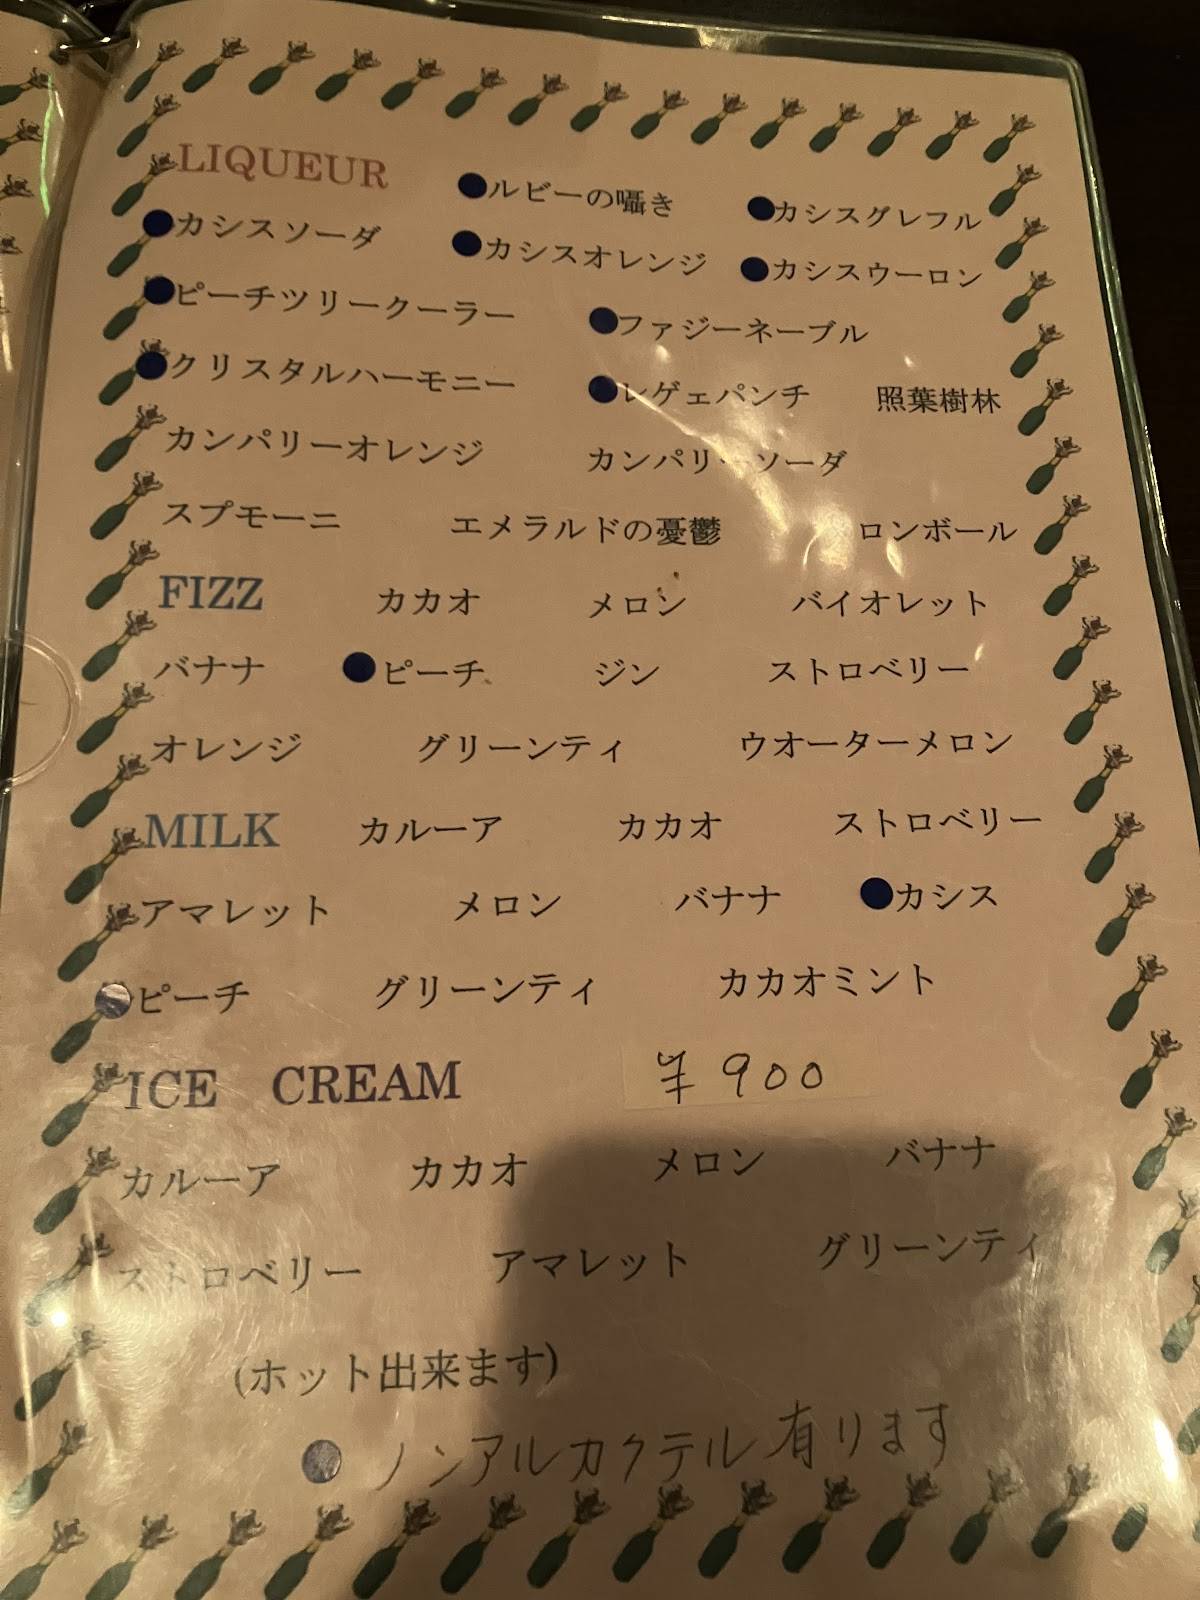 LIQUEUR ●ルビーの囁き ●カシスグレフル
●カシスソーダ ●カシスオレンジ ●カシスウーロン
●ピーチツリークーラー ●ファジーネーブル
●クリスタルハーモニー ●レゲェパンチ 照葉樹林
カンパリーオレンジ カンパリーソーダ
スプモーニ エメラルドの憂鬱 ロンボール
FIZZ カカオ メロン バイオレット
バナナ ●ピーチ ジン ストロベリー
オレンジ グリーンティ ウオーターメロン
MILK カルーア カカオ ストロベリー
アマレット メロン バナナ ●カシス
●ピーチ グリーンティ カカオミント
ICE CREAM ¥900
カルーア カカオ メロン バナナ
ストロベリー アマレット グリーンティ
(ホット出来ます)
●ノンアルカクテル有ります